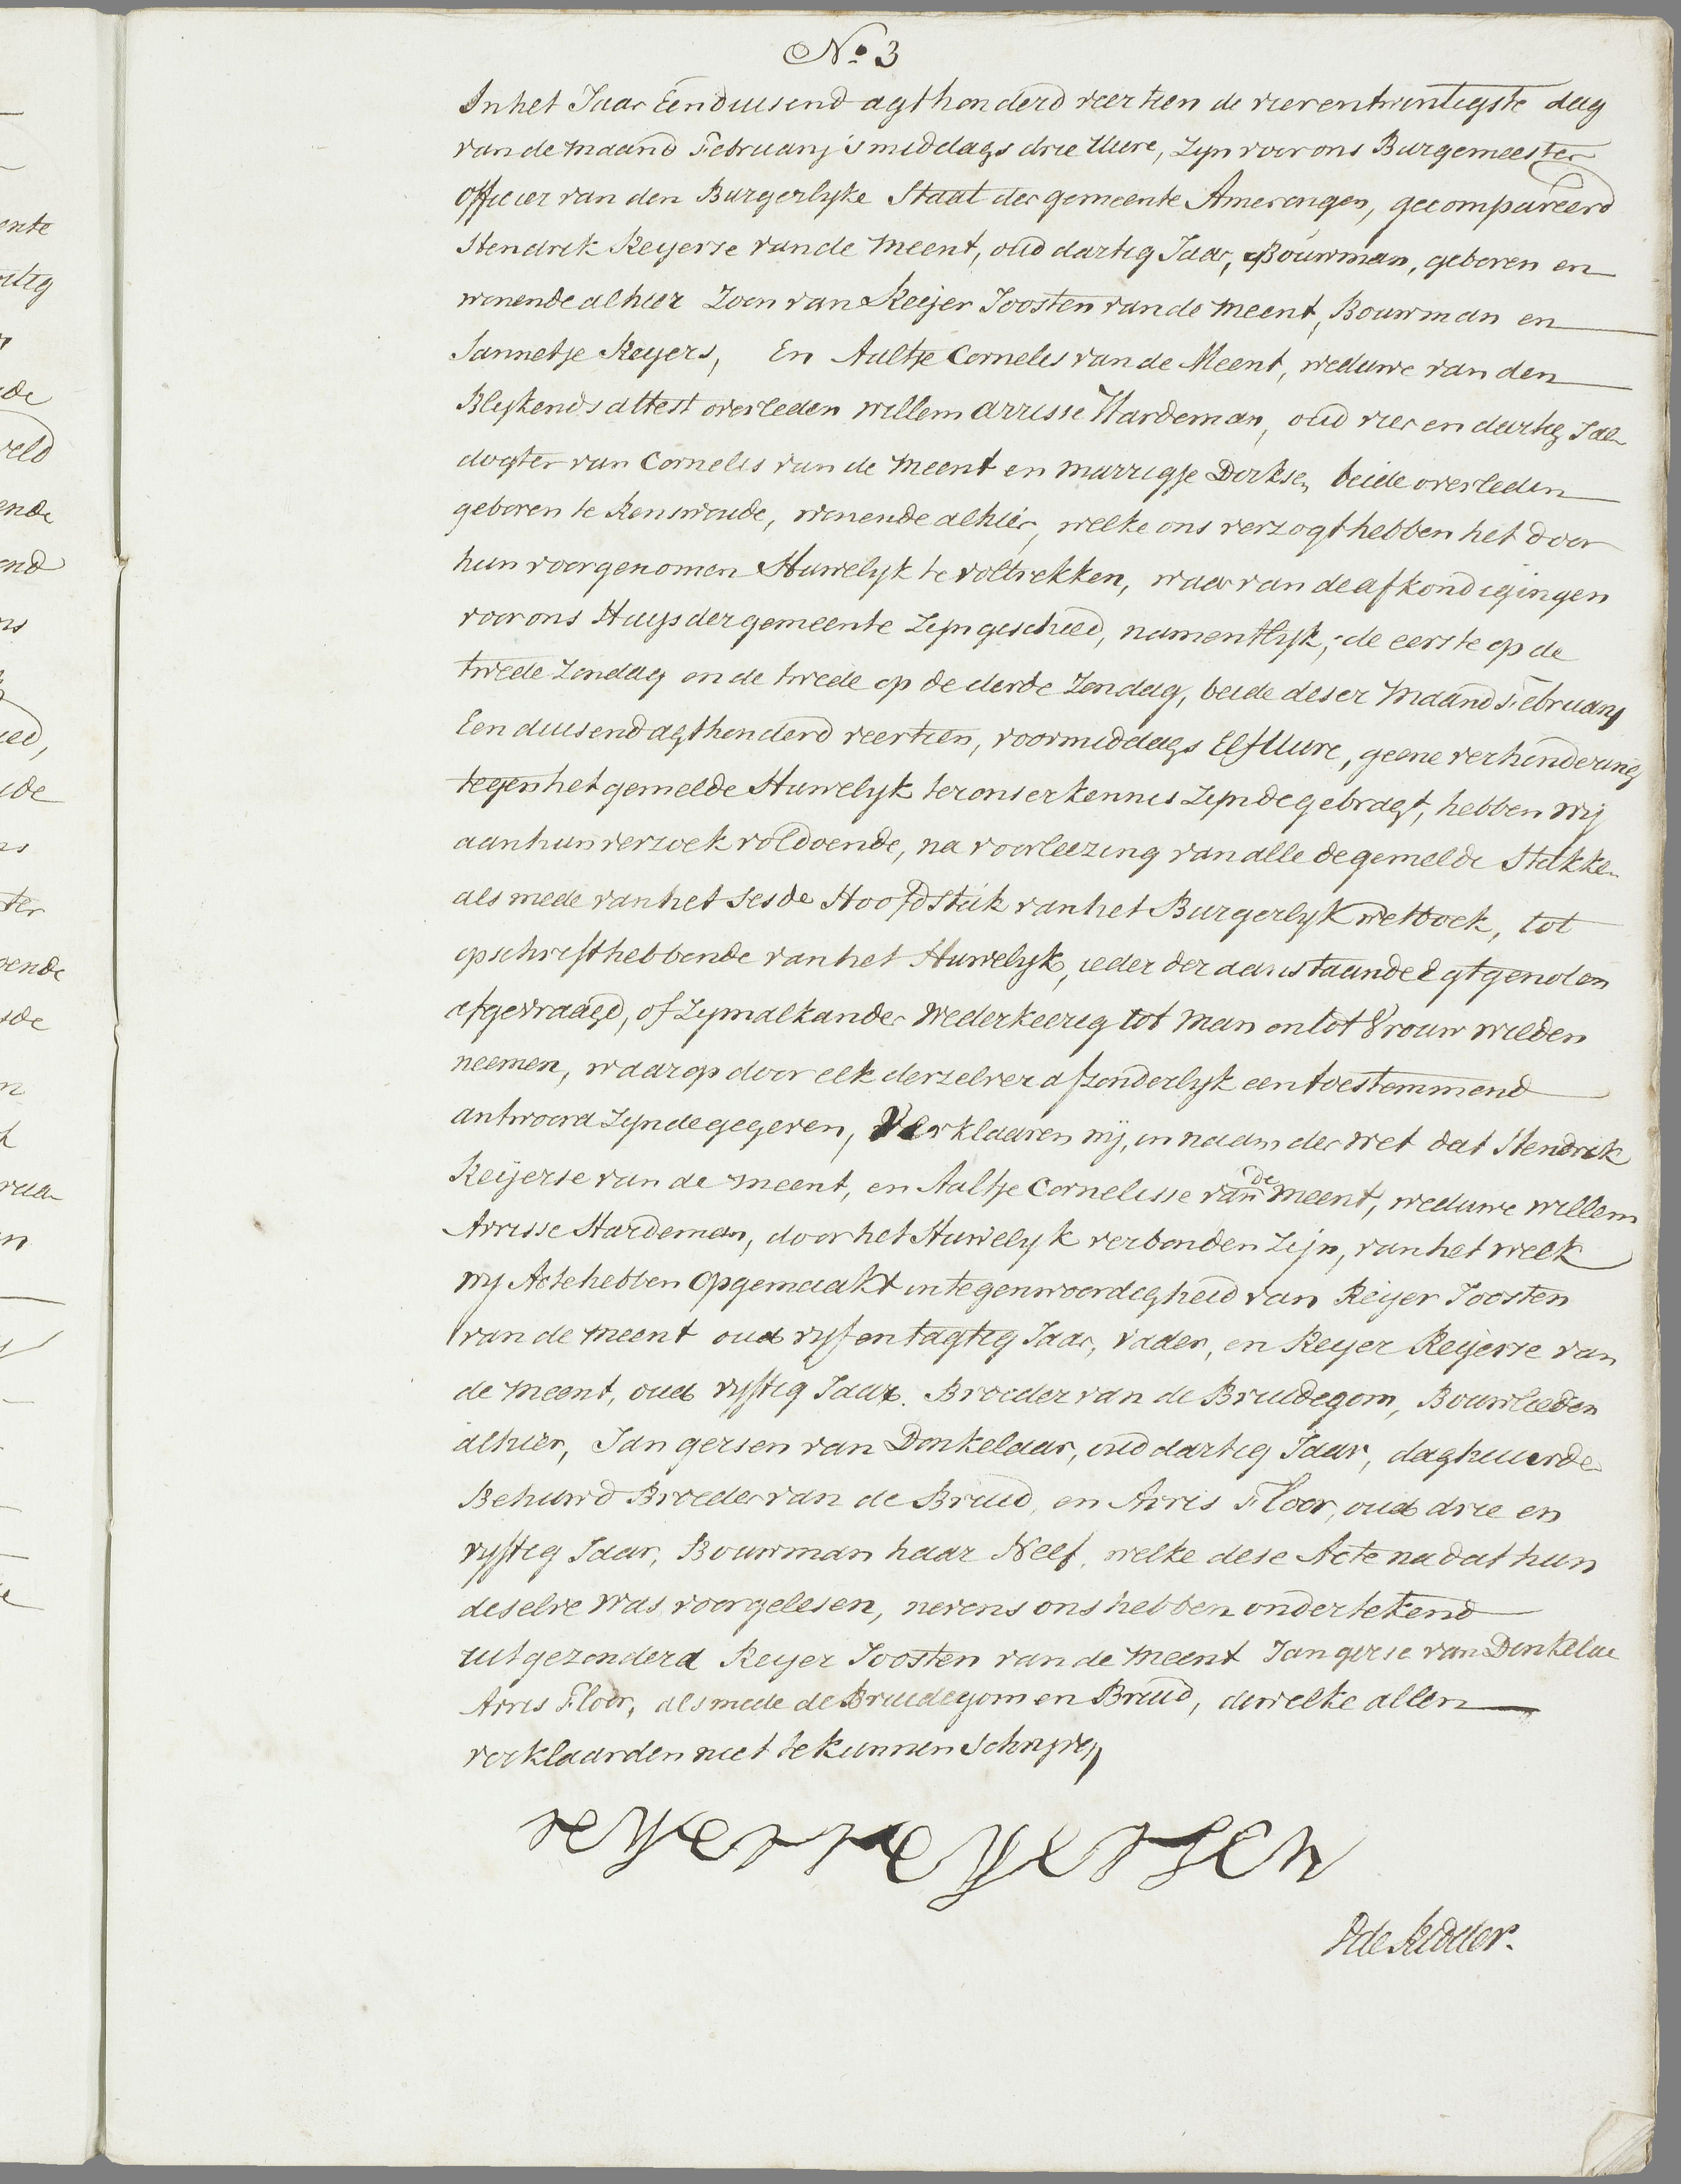 No. 3
In het Jaar Eenduisend agthonderd veertien de vierentwintigste dag
van de maand Februarij s middags drie Uure, Zijn voor ons Burgemeester
officier van den Burgerlijke Staat der gemeente Amerongen, gecompareerd
Hendrik Reijerse van de Meent, oud dartig Jaar, Bouwman, geboren en
wonende alhier Zoon van Reijer Joosten van de Meent, Bouwman en
Jannetje Reijers, En Aaltje Cornelis van de Meent, weduwe van den
Blijkends attest overleden Willem Arrisse Hardeman, oud vier en dartig Jaar
dogter van Cornelis van de Meent en Marrigje Dirksen, beide overleden
geboren te Renswoude, wonende alhier, welke ons verzogt hebben het door
hun voorgenomen Huwelijk te voltrekken, waar van de afkondigingen
voor ons Huijs der gemeente Zijn geschied, namentlijk, de eerste op de
twede Zondag en de twede op de derde Zondag, beide deser Maand Februarij
Een duisend agthonderd veertien, voormiddags Elf Uure, geene verhindering
tegen het gemelde Huwelijk ter onser kennis Zijnde gebragt, hebben Wij
aan hun verzoek voldoende, na voorleezing van alle de gemelde Stukken
als mede van het Sesde Hoofdstuk van het Burgerlijk Wetboek, tot
opschrift hebbende van het Huwelijk, ieder der aanstaande Egtgenoten
afgevraagd, of Zij malkander Wederkeerig tot Man en tot Vrouw wilden
neemen, waarop door elk derzelver afzonderlijk een toestemmend
antwoord Zijnde gegeven, Verklaaren wij, in naam der Wet dat Hendrik
Reijerse van de Meent, en Aaltje Cornelisse van de Meent, weduwe Willem
Arrisse Hardeman, door het Huwelijk verbonden Zijn, van het welk
wij Acte hebben Opgemaakt in tegenwoordigheid van Reijer Joosten
van de Meent oud vijf en tagtig Jaar, vader, en Reijer Reijerse van
de Meent, oud vijftig Jaar. Broeder van de Bruidegom, Bouwlieden
alhier, Jan gersen van Donkelaar, oud dartig Jaar, daghuurder
Behuwd Broeder van de Bruid, en Arris Floor, oud drie en
vijftig Jaar, Bouwman haar Neef, welke dese Acte na dat hun
deselve Was voorgelesen, nevens ons hebben ondertekend
uitgezonderd Reijer Joosten van de Meent Jan gerse van Donkelaa
Arris Floor, als mede de Bruidegom en Bruid, dewelke allen
verklaarden niet te kunnen Schrijven
reyer reyersen
P de Ridder.